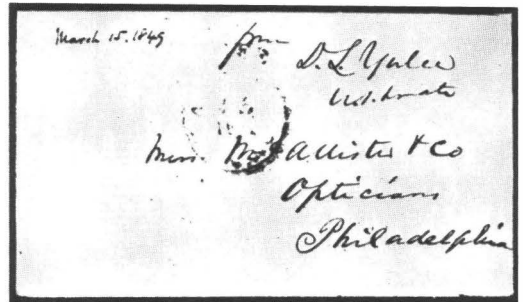 March 15. 1849
from
D. L. Yulee
U.S. Senate
Messrs. McAllister & Co
Opticians
Philadelphia